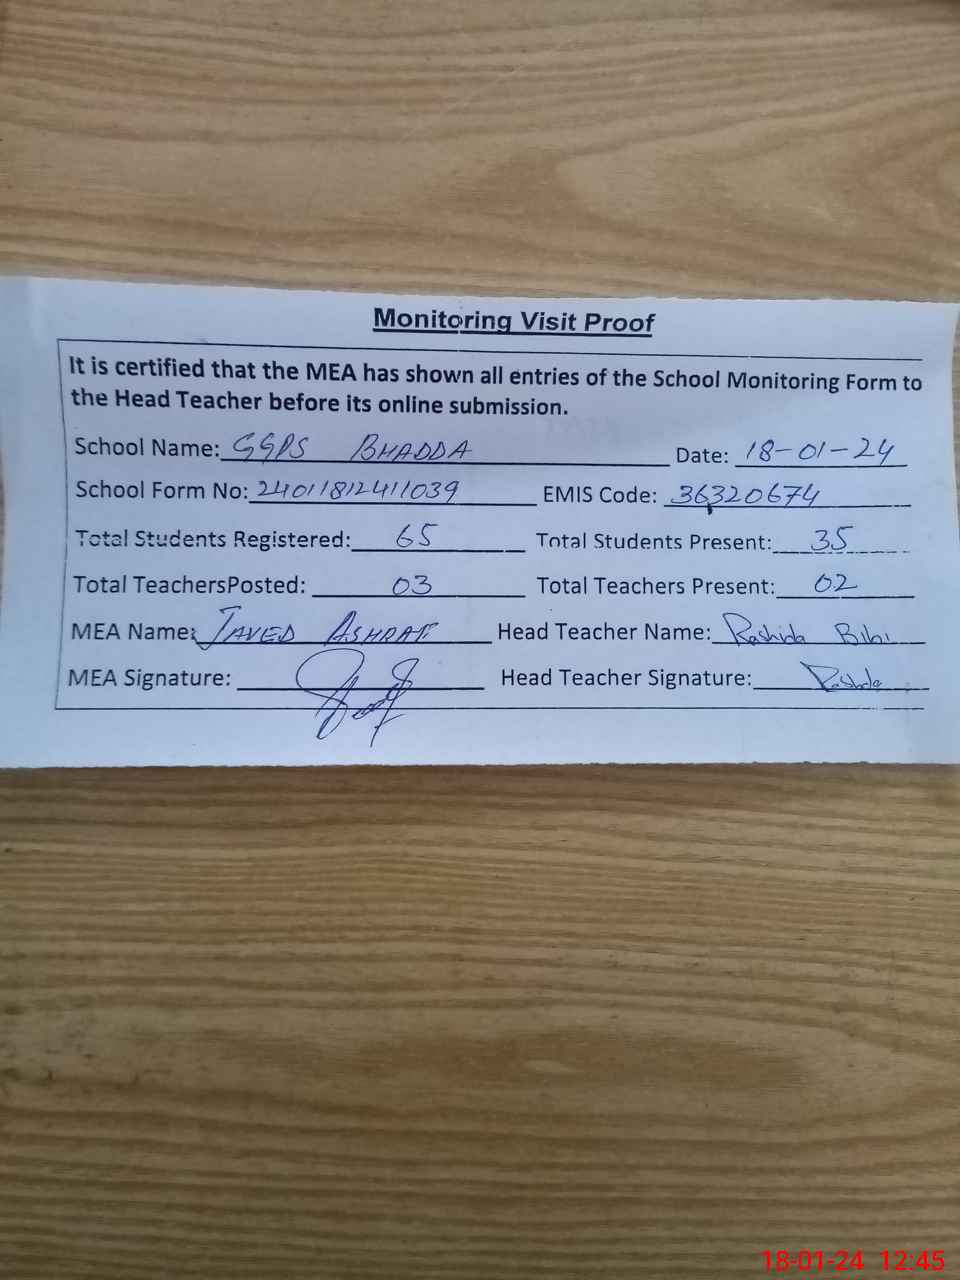 Monitoring Visit Proof
It is certified that the MEA has shown all entries of the School Monitoring Form to
the Head Teacher before its online submission.
School Name: GGPS BHADDA Date: 18-01-24
School Form No: 24011812411039 EMIS Code: 36320674
Total Students Registered: 65 Total Students Present: 35
Total TeachersPosted: 03 Total Teachers Present: 02
MEA Name: JAVED ASHRAF Head Teacher Name: Rashida Bibi
MEA Signature: Head Teacher Signature: Rashda
18-01-24 12:45